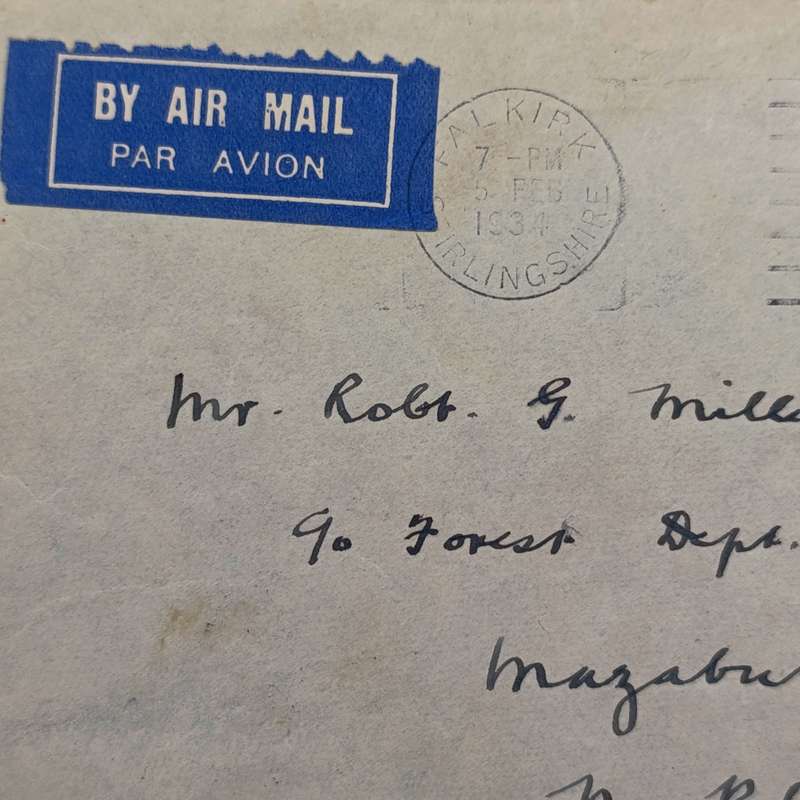 BY AIR MAIL
PAR AVION
FALKIRK
7 - PM
5 FEB
1934
STIRLINGSHIRE
Mr. Robt. G. Mill
c/o Forest Dept.
Mazabu
N. R